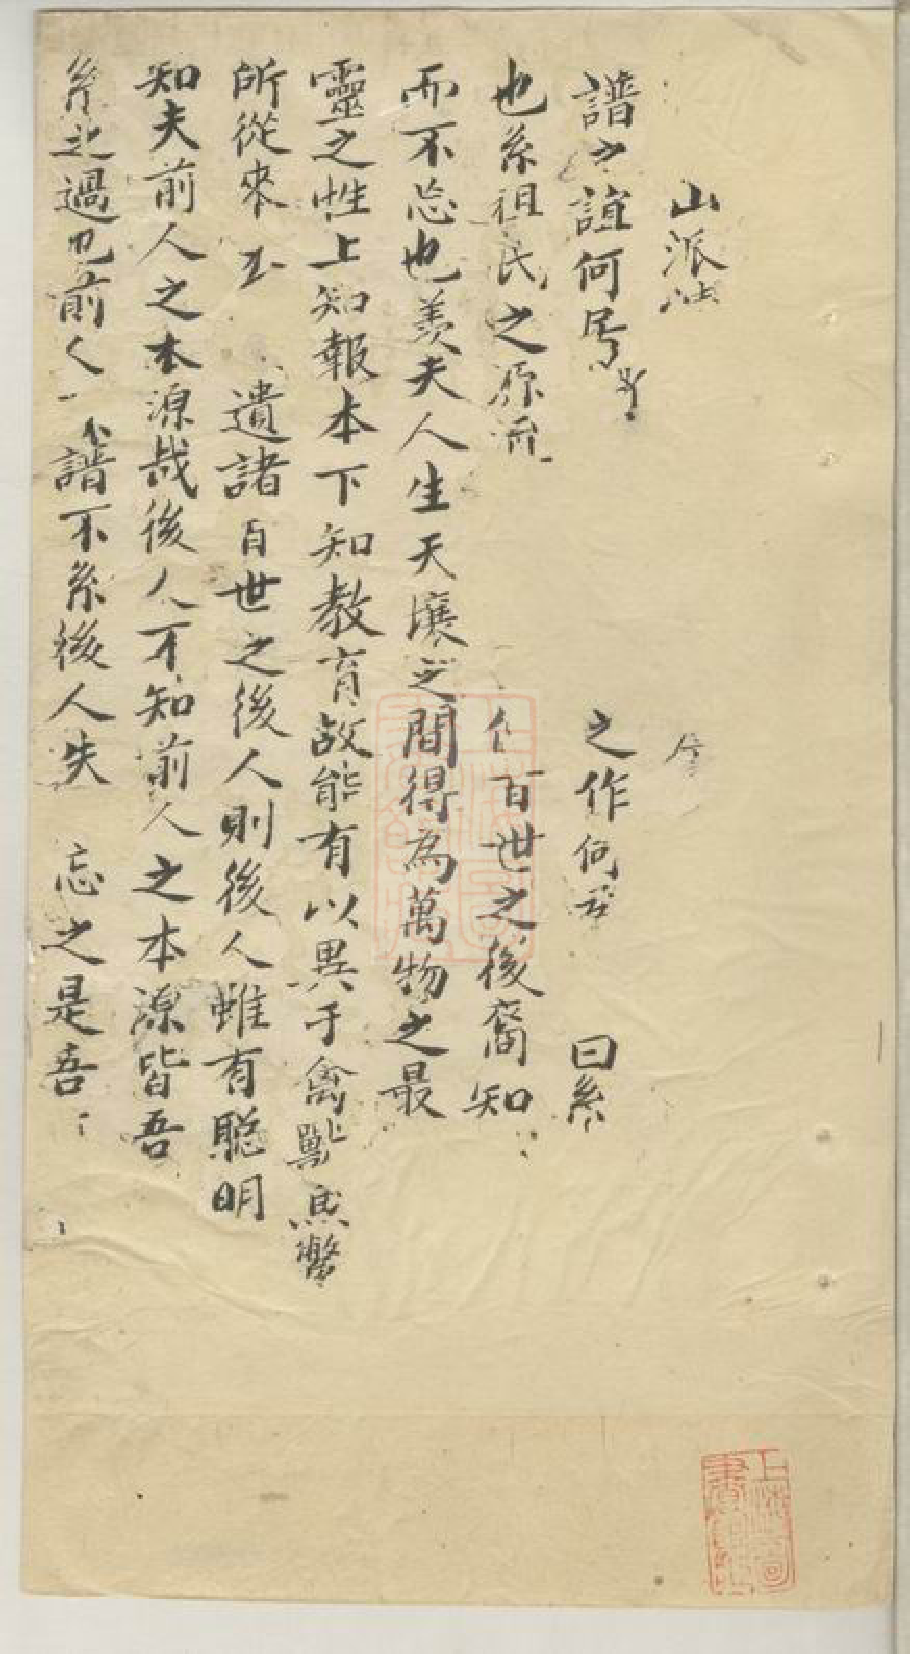 山派
譜之誼何 之作何 曰系
也系祖民之源流 百世之後裔知
而不忘也羨夫人生天壤之間得為萬物之最
靈之性上知報本下知教育故能有以異于禽獸焉
所從來 遺諸百世之後人則後人雖有聰明
知夫前人之本源哉後人不知前人之本源皆吾
系之過也前人 譜不系後人失 忘之是吾
上海圖書館